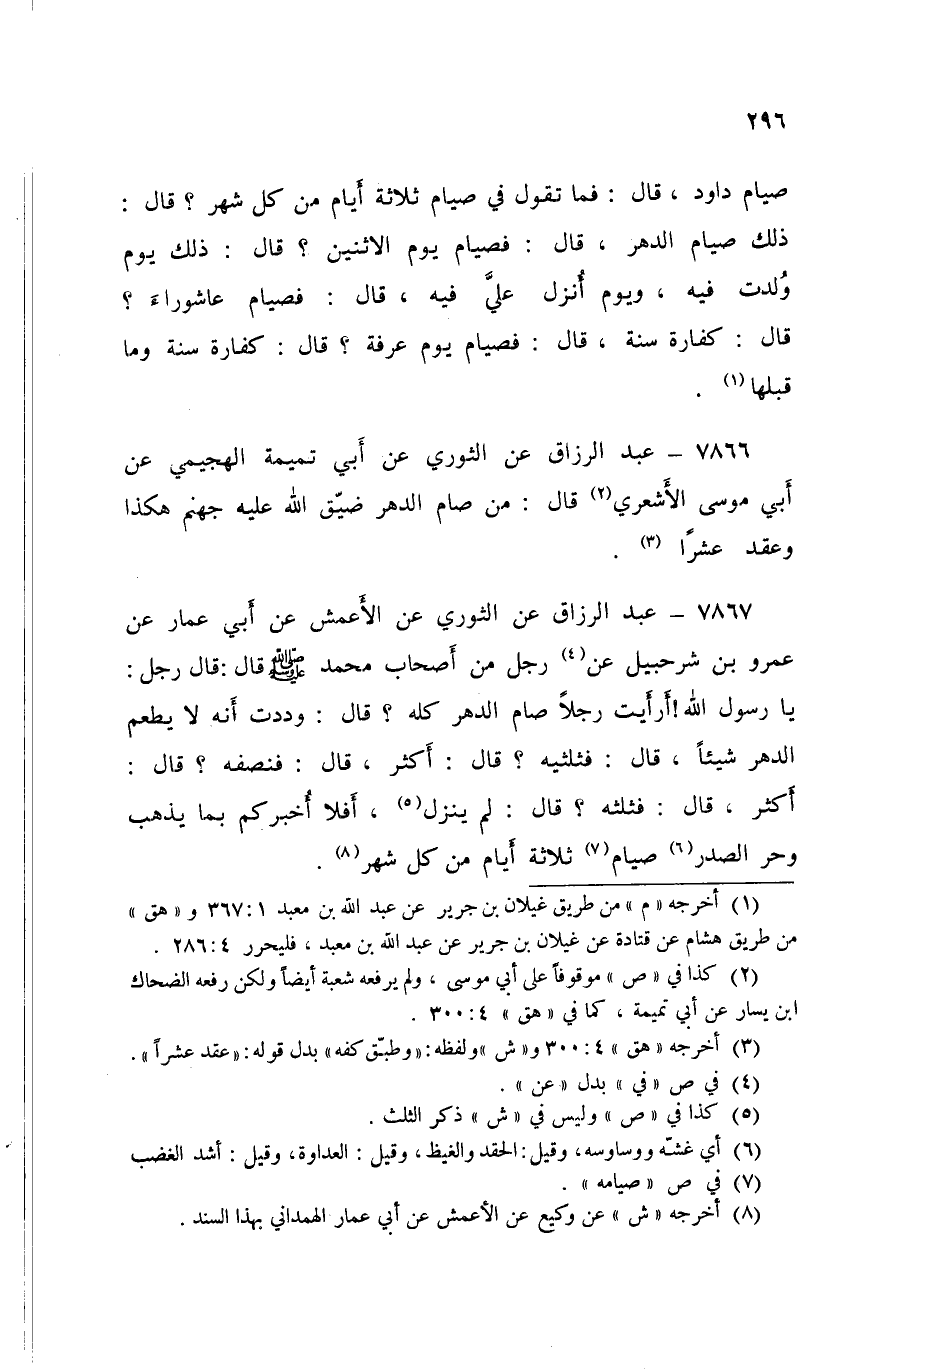 ٢٩٦
صيام داود ، قال : فما تقول في صيام ثلاثة أَيام من كل شهر ؟ قال :
ذلك صيام الدهر ، قال : فصيام يوم الاثنين ؟ قال : ذلك يوم
وُلدت فيه ، ويوم أُنزل عليَّ فيه ، قال : فصيام عاشوراءَ ؟
قال : كفارة سنة ، قال : فصيام يوم عرفة ؟ قال : كفارة سنة وما
قبلها (١) .
٧٨٦٦ – عبد الرزاق عن الثوري عن أَبي تميمة الهجيمي عن
أَبي موسى الأَشعري (٢) قال : من صام الدهر ضيّق الله عليه جهنم هكذا
وعقد عشرًا (٣) .
٧٨٦٧ – عبد الرزاق عن الثوري عن الأَعمش عن أَبي عمار عن
عمرو بن شرحبيل عن (٤) رجل من أَصحاب محمد ﷺ قال :قال رجل :
يا رسول الله !أَرأَيت رجلاً صام الدهر كله ؟ قال : وددت أَنه لا يطعم
الدهر شيئاً ، قال : فثلثيه ؟ قال : أَكثر ، قال : فنصفه ؟ قال :
أَكثر ، قال : فثلثه ؟ قال : لم ينزل (٥) ، أَفلا أُخبركم بما يذهب
وحر الصدر (٦) صيام (٧) ثلاثة أَيام من كل شهر (٨) .
(١) أخرجه « م » من طريق غيلان بن جرير عن عبد الله بن معبد ١ :٣٦٧ و « هق »
من طريق هشام عن قتادة عن غيلان بن جرير عن عبد الله بن معبد ، فليحرر ٤ :٢٨٦ .
(٢) كذا في « ص » موقوفاً على أبي موسى ، ولم يرفعه شعبة أيضاً ولكن رفعه الضحاك
ابن يسار عن أبي تميمة ، كما في « هق » ٤ :٣٠٠ .
(٣) أخرجه « هق » ٤ :٣٠٠ و« ش »ولفظه :«وطبّق كفه» بدل قوله :«عقد عشراً» .
(٤) في ص « في » بدل « عن » .
(٥) كذا في « ص » وليس في « ش » ذكر الثلث .
(٦) أي غشّه ووساوسه ، وقيل : الحقد والغيظ ، وقيل : العداوة ، وقيل : أشد الغضب
(٧) في ص « صيامه » .
(٨) أخرجه « ش » عن وكيع عن الأعمش عن أبي عمار الهمداني بهذا السند .